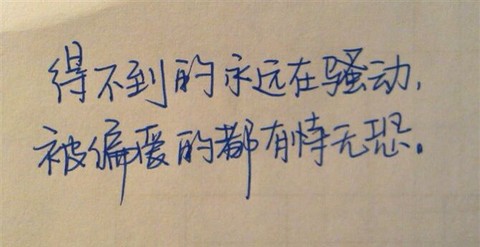 得不到的永远在骚动，
被偏爱的都有恃无恐。